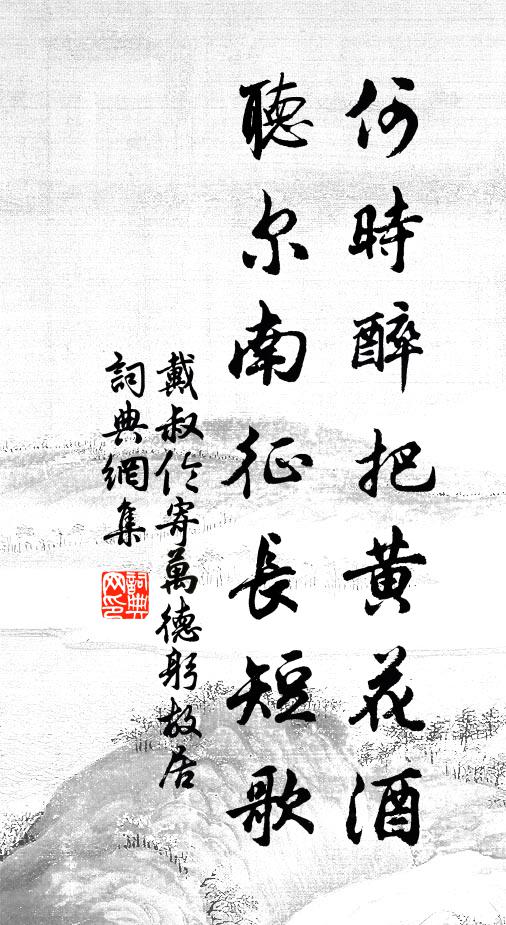 何時醉把黄花酒
聽尔南征長短歌
戴叔伦寄萬德躬故居
詞典網集
詞典网印